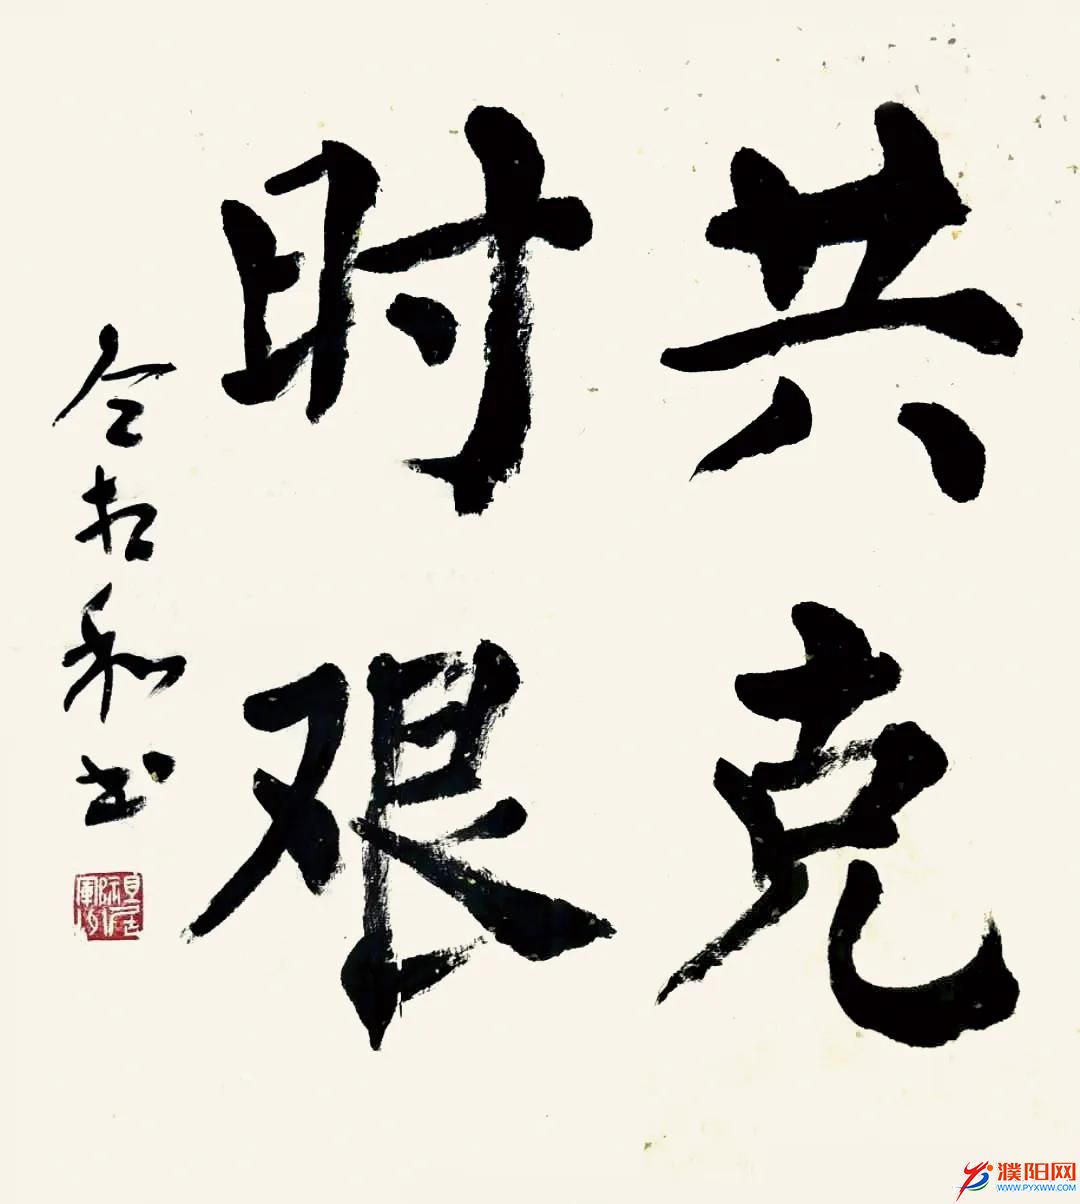 共克
时艰
仝相和书
濮阳网
WWW.PYXWW.COM